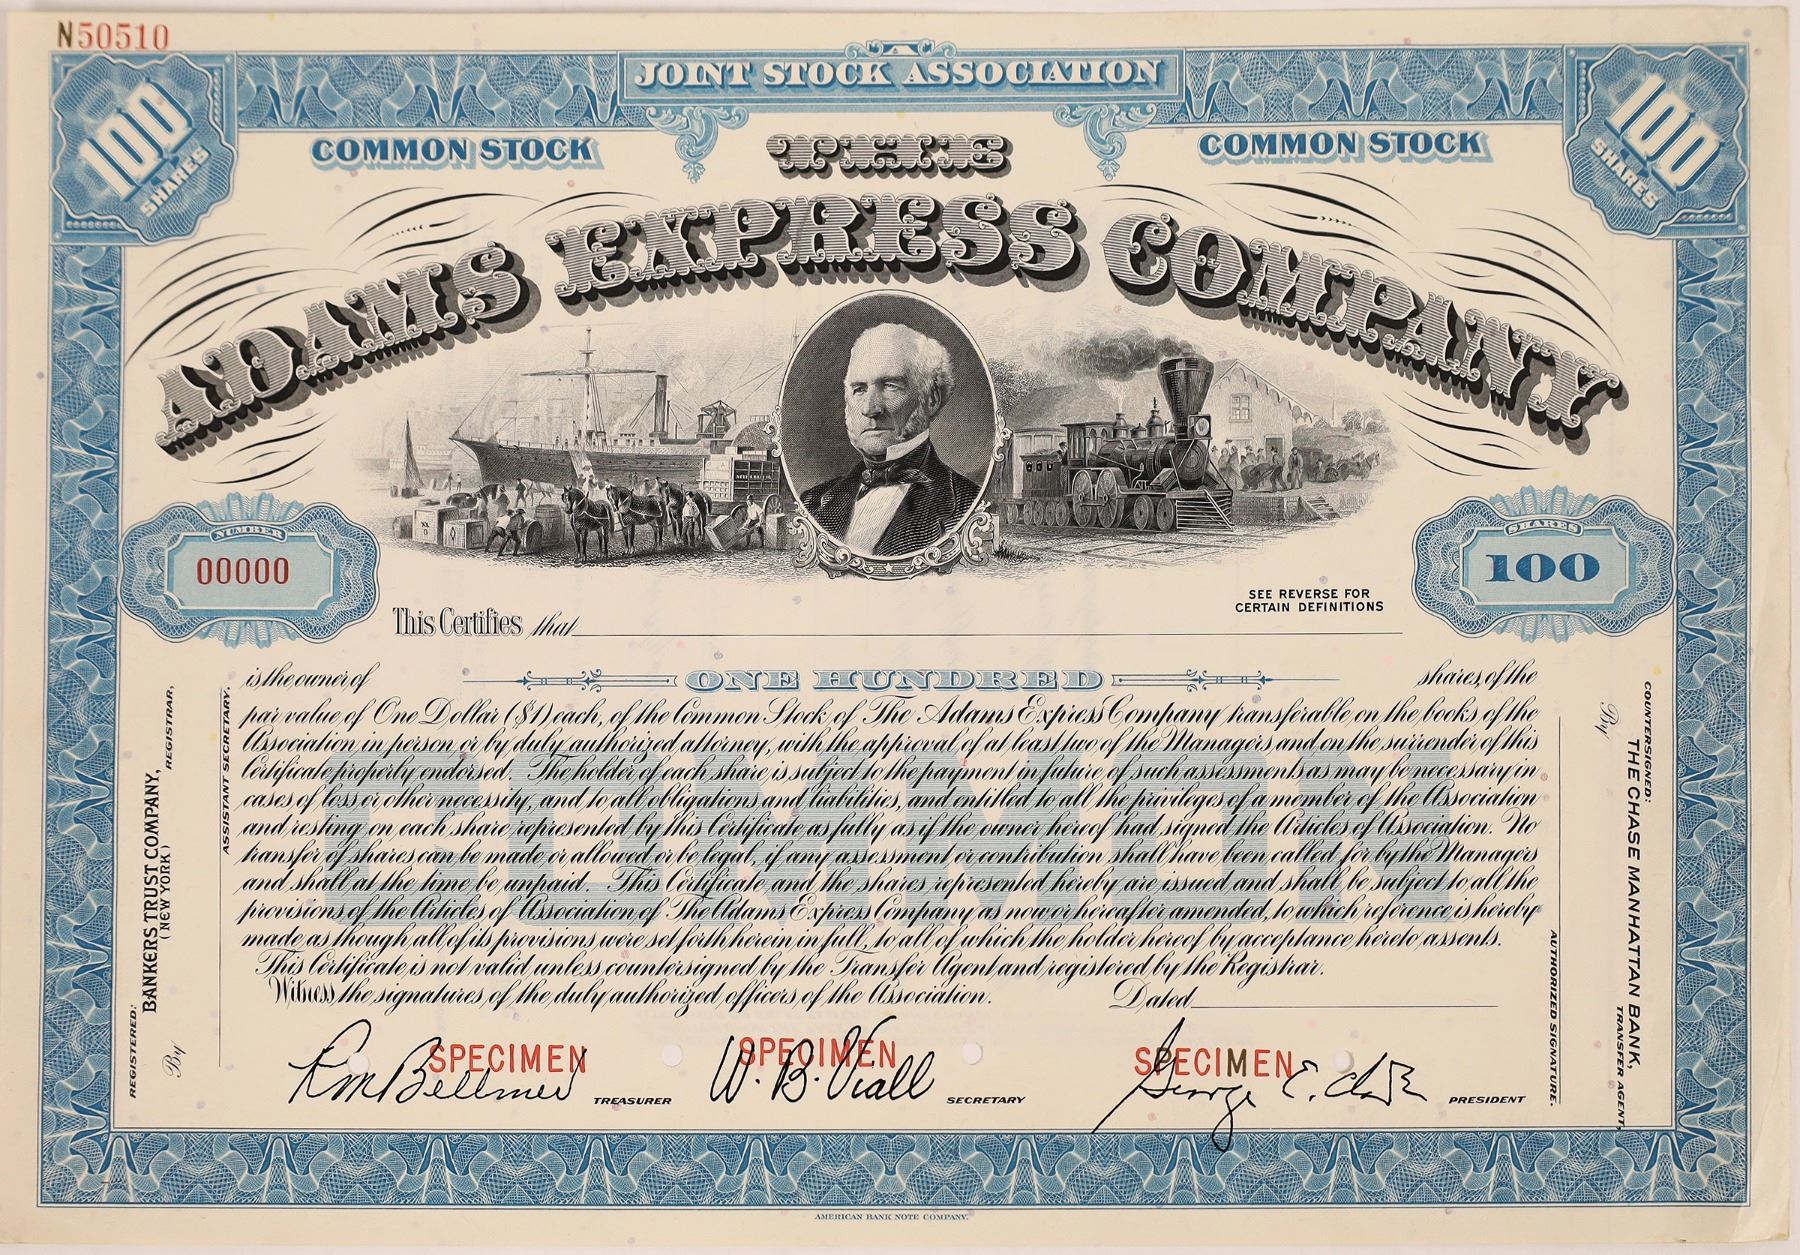 N50510
A
JOINT STOCK ASSOCIATION
100 SHARES
100 SHARES
COMMON STOCK
COMMON STOCK
THE
ADAMS EXPRESS COMPANY
NUMBER
00000
SHARES
100
SEE REVERSE FOR
CERTAIN DEFINITIONS
This Certifies that
is the owner of ONE HUNDRED shares of the
par value of One Dollar ($1) each, of the Common Stock of The Adams Express Company transferable on the books of the
Association in person or by duly authorized attorney, with the approval of at least two of the Managers and on the surrender of this
Certificate properly endorsed. The holder of each share is subject to the payment in future of such assessments as may be necessary in
cases of loss or other necessity, and to all obligations and liabilities, and entitled to all the privileges of a member of the Association
and resting on each share represented by this Certificate as fully as if the owner hereof had signed the Articles of Association. No
transfer of shares can be made or allowed or be legal, if any assessment or contribution shall have been called for by the Managers
and shall at the time be unpaid. This Certificate and the shares represented hereby are issued and shall be subject to all the
provisions of the Articles of Association of The Adams Express Company as now or hereafter amended, to which reference is hereby
made as though all of its provisions were set forth herein in full, to all of which the holder hereof by acceptance hereto assents.
This Certificate is not valid unless countersigned by the Transfer Agent and registered by the Registrar.
Witness the signatures of the duly authorized officers of the Association. Dated
COMMON
SPECIMEN
SPECIMEN
SPECIMEN
TREASURER
W. B. Viall
SECRETARY
George E. Clark
PRESIDENT
REGISTERED:
BANKERS TRUST COMPANY,
(NEW YORK) REGISTRAR,
By
ASSISTANT SECRETARY.
COUNTERSIGNED:
THE CHASE MANHATTAN BANK,
TRANSFER AGENT,
By
AUTHORIZED SIGNATURE.
AMERICAN BANK NOTE COMPANY.